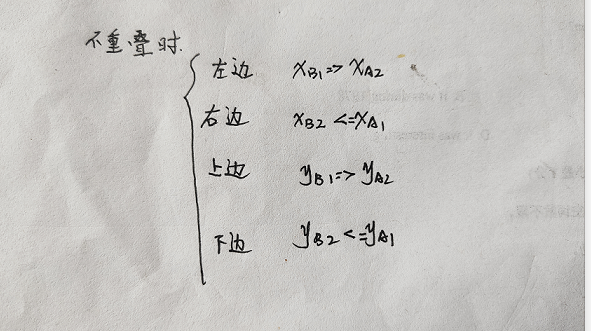 不重叠时
左边 xB1=> xA2
右边 xB2 <=xA1
上边 yB1=> yA2
下边 yB2 <=yA1